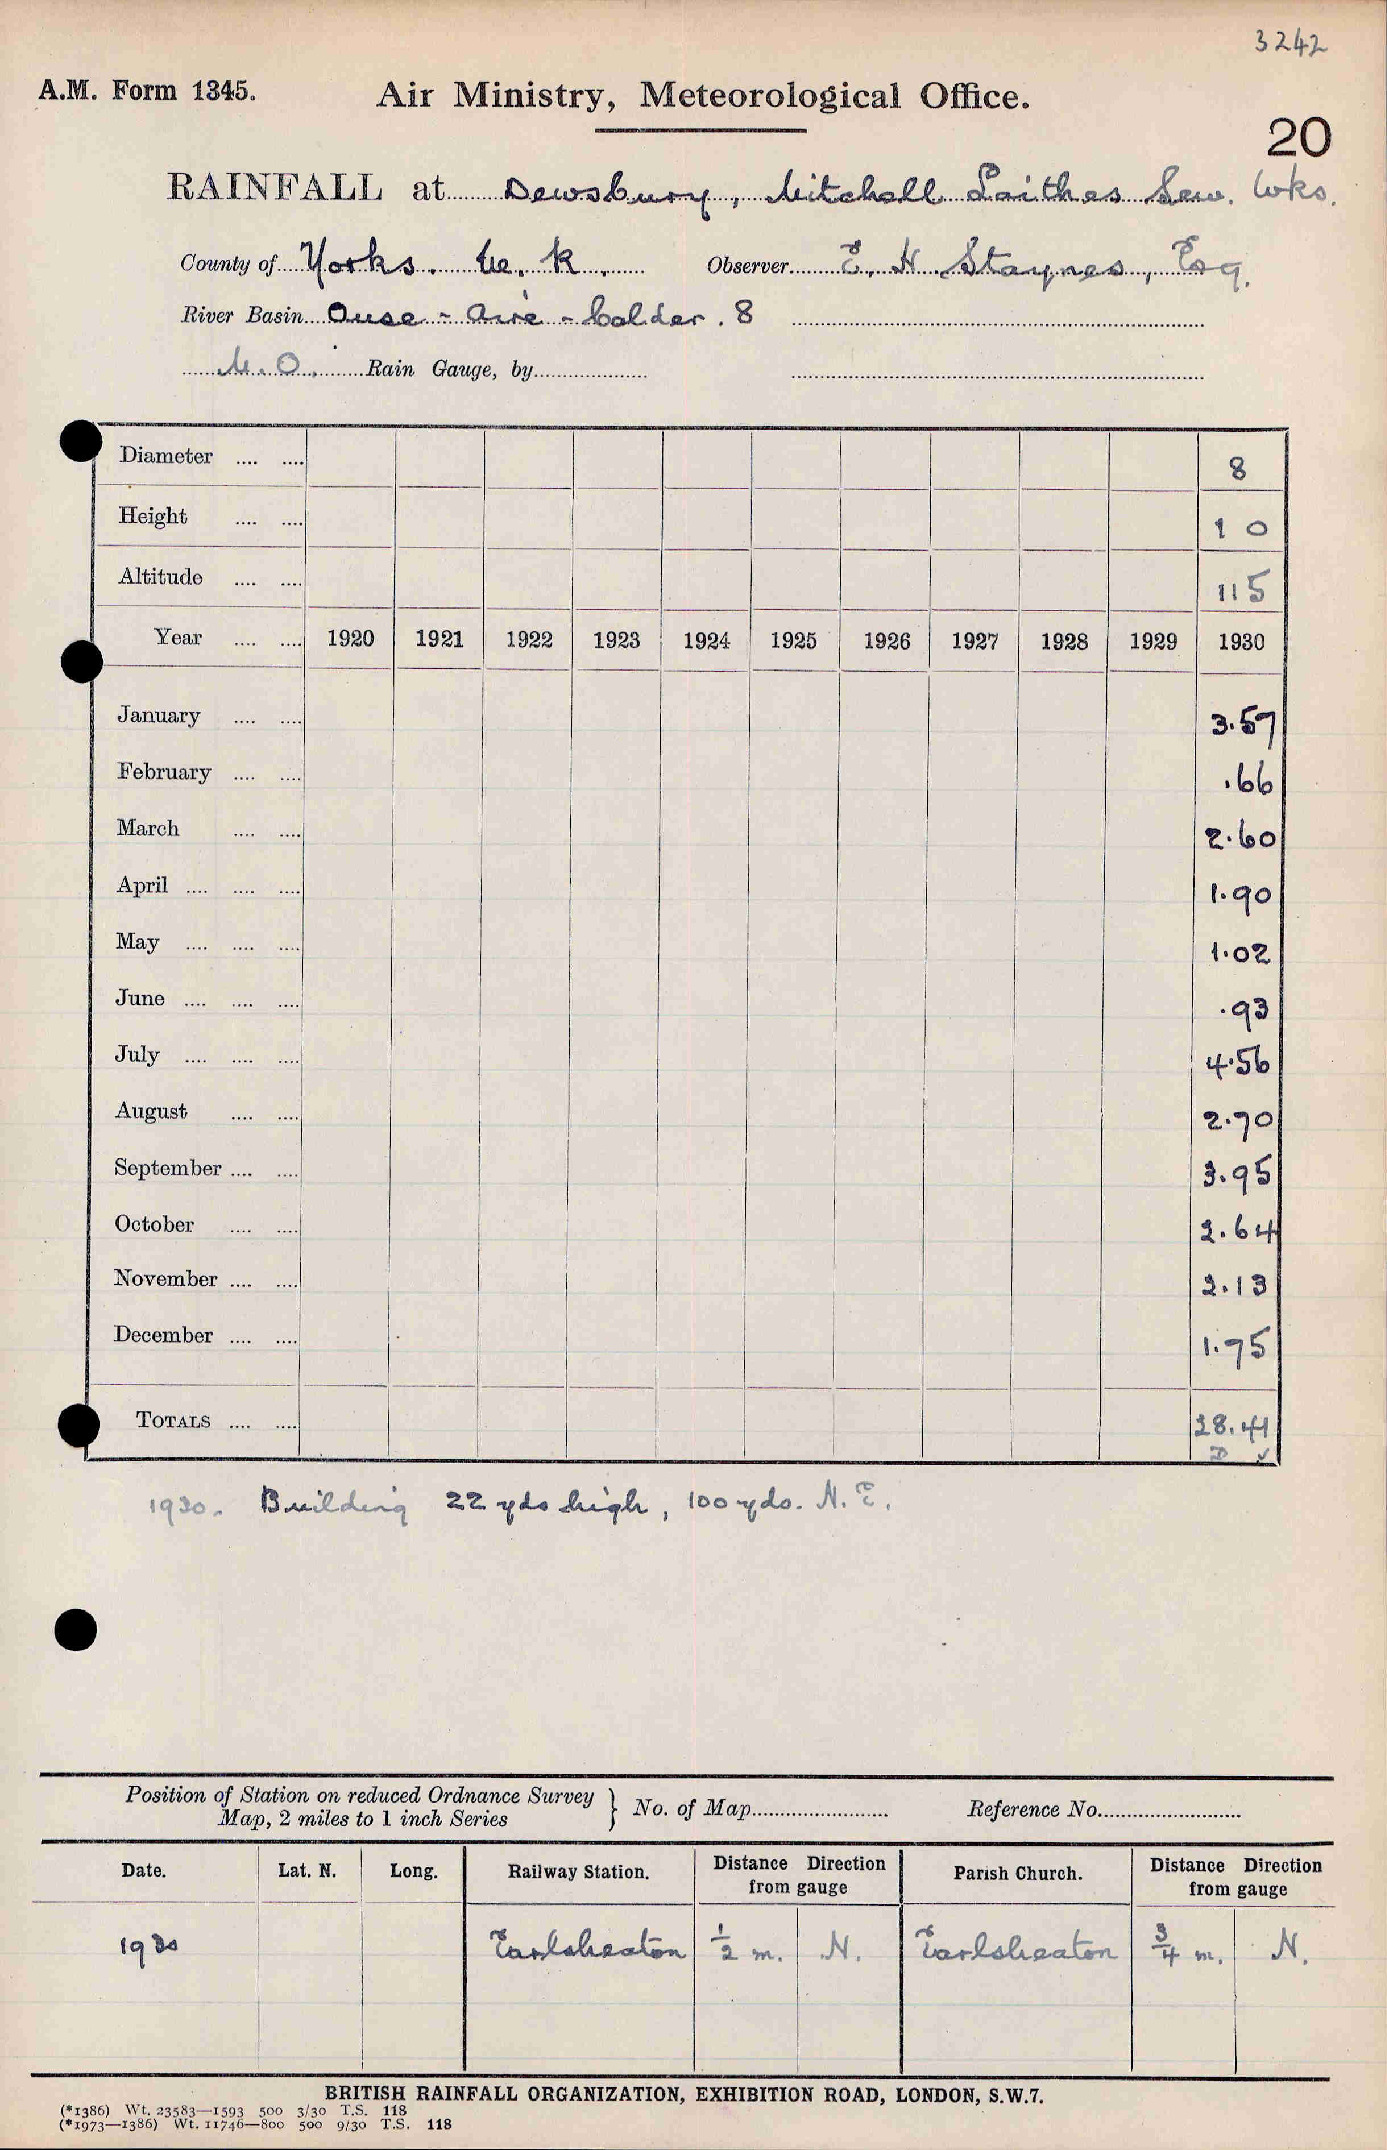 3242
A.M. Form 1345.
Air Ministry, Meteorological Office.
20
RAINFALL at Dewsbury, Mitchell Laithes Sew. Wks.
County of Yorks. W. R. Observer E. H. Staynes, Esq.
River Basin Ouse - Aire - Calder. 8
M.O. Rain Gauge, by
Diameter .... .... 8
Height .... .... 1 0
Altitude .... .... 115
Year .... .... 1920 1921 1922 1923 1924 1925 1926 1927 1928 1929 1930
January .... .... 3.57
February .... .... .66
March .... .... 2.60
April .... .... .... 1.90
May .... .... .... 1.02
June .... .... .... .93
July .... .... .... 4.56
August .... .... 2.70
September .... .... 3.95
October .... .... 2.64
November .... .... 2.13
December .... .... 1.75
TOTALS .... .... 28.41
D ✓
1930. Building 22 yds high, 100 yds. N.E.
Position of Station on reduced Ordnance Survey
Map, 2 miles to 1 inch Series } No. of Map Reference No.
Date. Lat. N. Long. Railway Station. Distance Direction from gauge Parish Church. Distance Direction from gauge
1930 Earlsheaton 1/2 m. N. Earlsheaton 3/4 m. N.
BRITISH RAINFALL ORGANIZATION, EXHIBITION ROAD, LONDON, S.W.7.
(*1386) Wt. 23583—1593 500 3/30 T.S. 118
(*1973—1386) Wt. 11746—800 500 9/30 T.S. 118